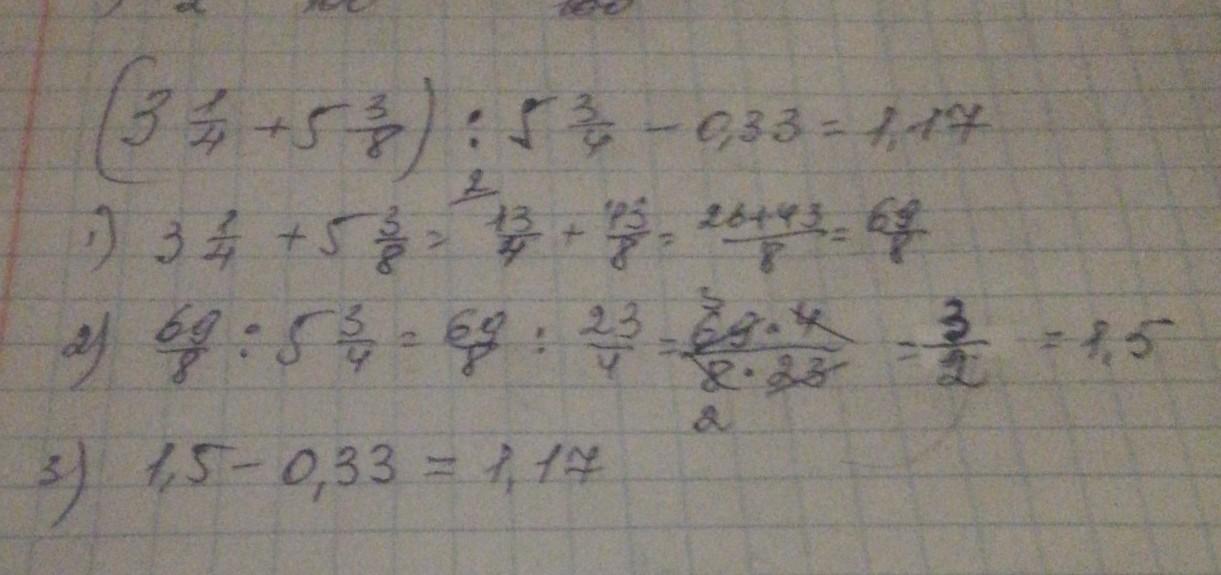 (3 1/4 + 5 3/8) : 5 3/4 - 0,33 = 1,17
1) 3 1/4 + 5 3/8 = 2 13/4 + 43/8 = 26+43/8 = 69/8
2) 69/8 : 5 3/4 = 69/8 : 23/4 = 3 69·4/8·23 2 = 3/2 = 1,5
3) 1,5 - 0,33 = 1,17